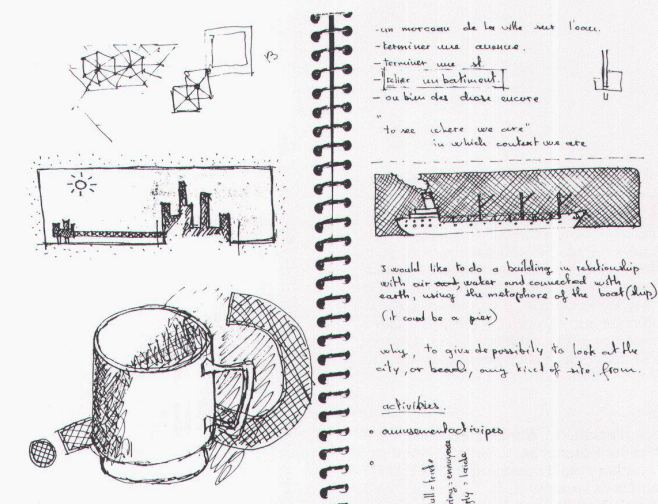 B
-un morceau de la ville sur l'eau.
-terminer une avenue.
-terminer une st
-relier un batiment.
- ou bien des chose encore
"to see where we are"
in which context we are
I would like to do a building in relationship
with air water and connected with
earth, using the metaphore of the boat (ship)
(it coud be a pier)
why, to give de possibility to look at the
city, or beach, any kind of site, from.
activities.
amusement activipes
ull = triste
ing = ennuyeuse
gly = laide